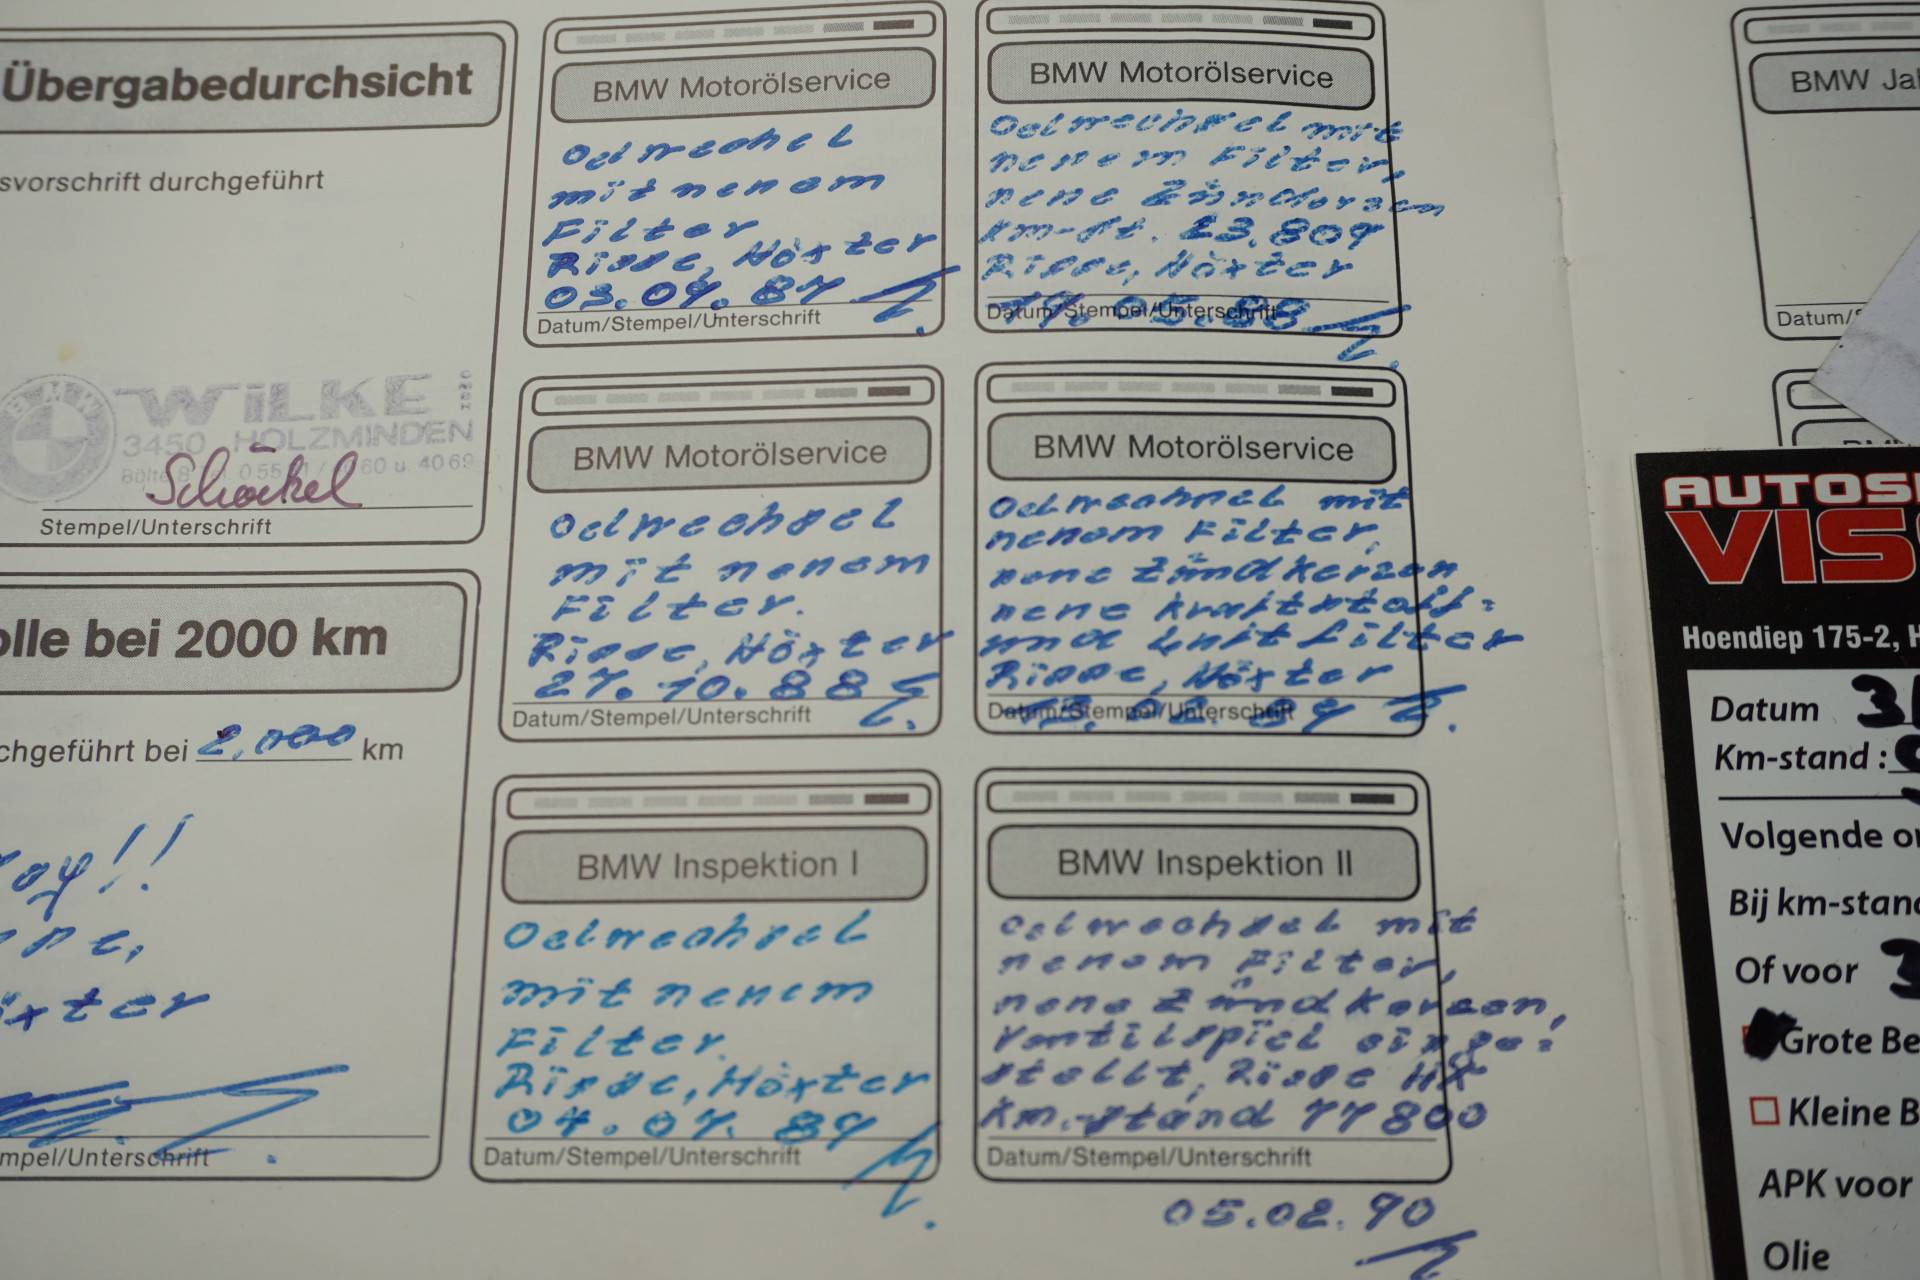 Übergabedurchsicht
svorschrift durchgeführt
WILKE
3450 HOLZMINDEN
60 u. 40 69
Schäkel
Stempel/Unterschrift
olle bei 2000 km
chgeführt bei 2,000 km
oy!!
xter
mpel/Unterschrift
BMW Motorölservice
Oelwechsel
mit neuem
Filter
Risse, Höxter
Datum/Stempel/Unterschrift
BMW Motorölservice
Oelwechsel mit
neuem Filter,
neue Zündkerzen
km-St. 23.809
Risse, Höxter
19.05.88
Datum/Stempel/Unterschrift
BMW Motorölservice
Oelwechsel
mit neuem
Filter.
Risse, Höxter
27.10.88
Datum/Stempel/Unterschrift
BMW Motorölservice
Oelwechsel mit
neuem Filter,
neue Zündkerzen
neue Kraftstoff-
und Luftfilter
Risse, Höxter
Datum/Stempel/Unterschrift
BMW Inspektion I
Oelwechsel
mit neuem
Filter.
Risse, Höxter
04.07.89
Datum/Stempel/Unterschrift
BMW Inspektion II
Oelwechsel mit
neuem Filter,
neue Zündkerzen,
Ventilspiel einge-
stellt, Risse HX
km.-stand 77800
Datum/Stempel/Unterschrift
05.02.90
BMW Ja
Datum/
BMW
AUTOS
VIS
Hoendiep 175-2, H
Datum 31
Km-stand :
Volgende o
Bij km-stand
Of voor 3
Grote Be
Kleine B
APK voor
Olie